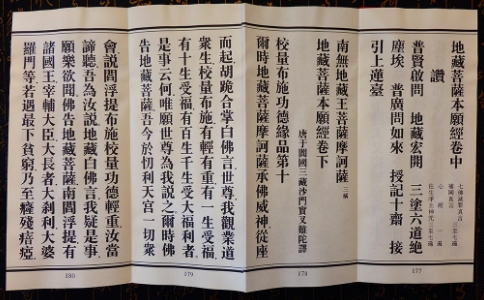 地藏菩薩本願經卷中
七佛滅罪真言 三至七遍
補闕真言
心經 一遍
往生淨土神咒 三至七遍
讚
普賢啟問 地藏宏開 三塗六道絶
塵埃 普廣問如來 授記十齋 接
引上蓮臺
177
南無地藏王菩薩摩訶薩 三稱
地藏菩薩本願經卷下
唐于闐國三藏沙門實叉難陀譯
校量布施功德緣品第十
爾時地藏菩薩摩訶薩承佛威神從座
178
而起胡跪合掌白佛言世尊我觀業道
衆生校量布施有輕有重有一生受福
有十生受福有百生千生受大福利者
是事云何唯願世尊為我説之爾時佛
告地藏菩薩吾今於忉利天宮一切衆
179
會説閻浮提布施校量功德輕重汝當
諦聽吾為汝説地藏白佛言我疑是事
願樂欲聞佛告地藏菩薩南閻浮提有
諸國王宰輔大臣大長者大刹利大婆
羅門等若遇最下貧窮乃至癃殘瘖瘂
180